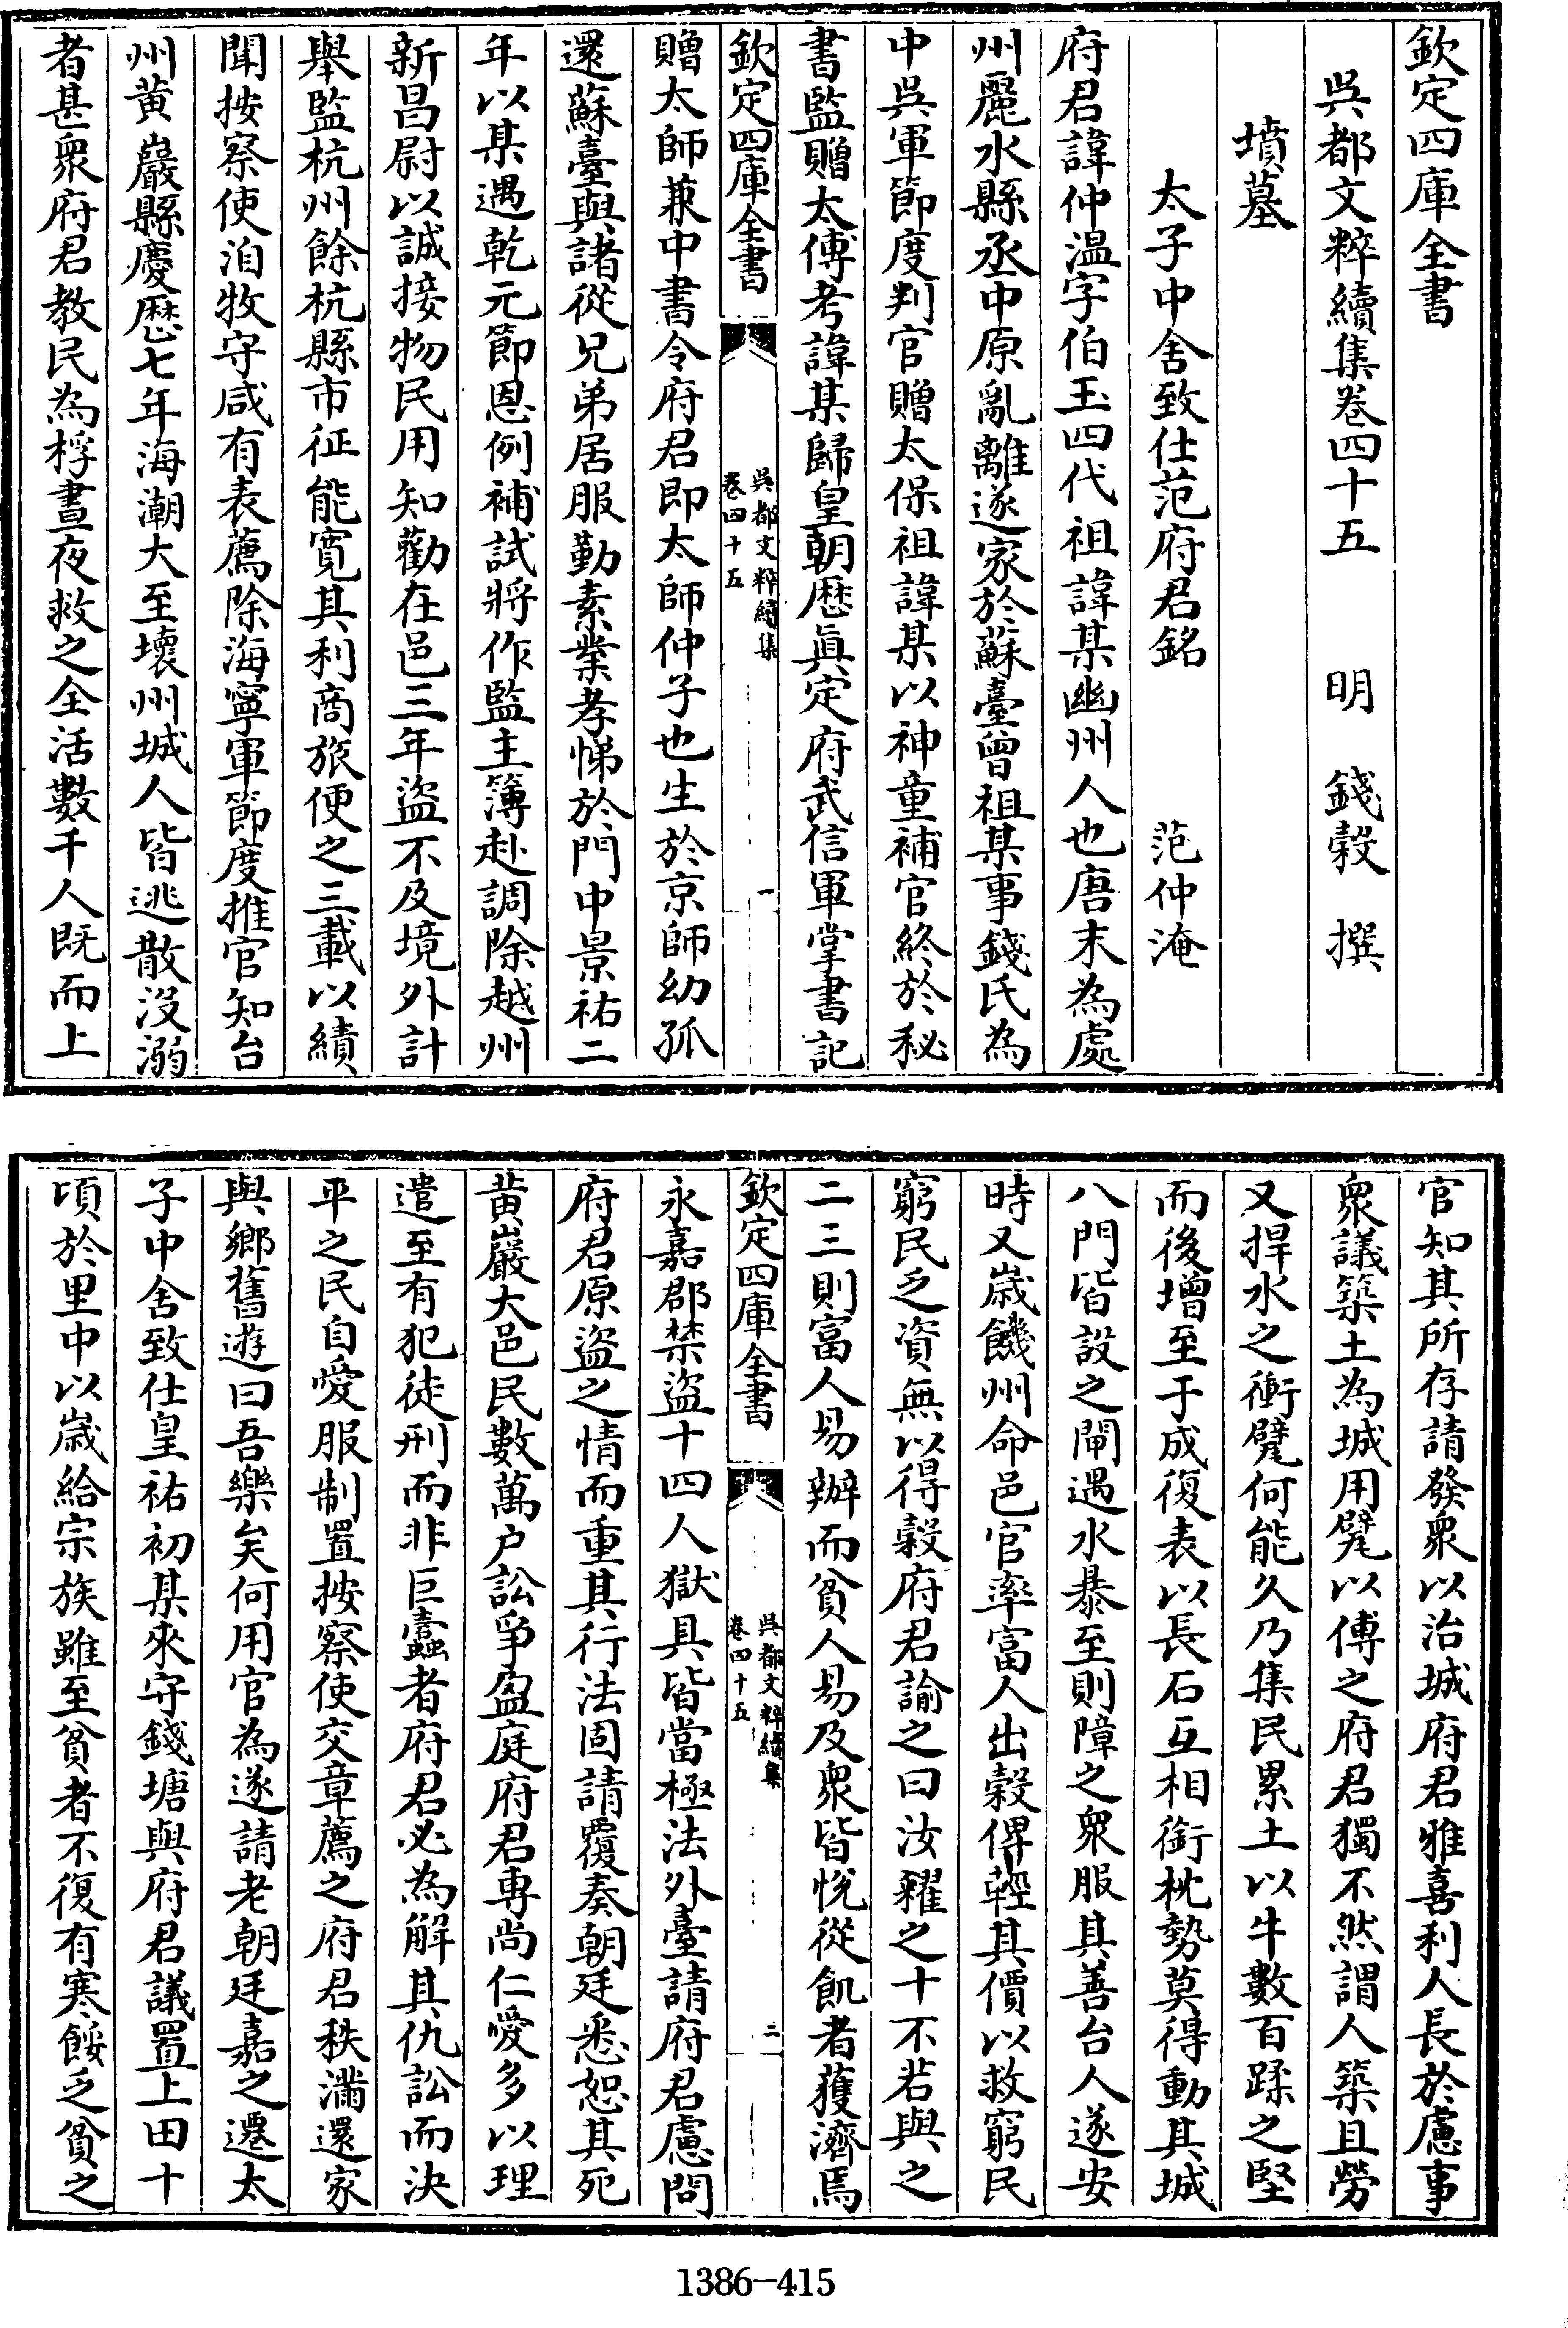 欽定四庫全書
吳都文粹續集卷四十五 明 錢穀 撰
墳墓
太子中舍致仕范府君銘 范仲淹
府君諱仲温字伯玉四代祖諱某幽州人也唐末為處
州麗水縣丞中原亂離遂家於蘇臺曾祖某事錢氏為
中吳軍節度判官贈太保祖諱某以神童補官終於秘
書監贈太傅考諱某歸皇朝歴真定府武信軍掌書記
欽定四庫全書
吳都文粹續集
卷四十五
一
贈太師兼中書令府君即太師仲子也生於京師幼孤
還蘇臺與諸從兄弟居服勤素業孝悌於門中景祐二
年以某遇乾元節恩例補試將作監主簿赴調除越州
新昌尉以誠接物民用知勸在邑三年盜不及境外計
舉監杭州餘杭縣市征能寛其利商旅便之三載以績
聞按察使洎牧守咸有表薦除海寧軍節度推官知台
州黄巖縣慶歴七年海潮大至壞州城人皆逃散没溺
者甚衆府君教民為桴晝夜救之全活數千人既而上
官知其所存請發衆以治城府君雅喜利人長於慮事
衆議築土為城用甓以傅之府君獨不然謂人築且勞
又捍水之衝甓何能久乃集民累土以牛數百蹂之堅
而後增至于成復表以長石互相銜枕勢莫得動其城
八門皆設之閘遇水暴至則障之衆服其善台人遂安
時又歲饑州命邑官率富人出穀俾輕其價以救窮民
窮民乏資無以得穀府君諭之曰汝糶之十不若與之
二三則富人易辦而貧人易及衆皆悅從飢者獲濟焉
欽定四庫全書
吳都文粹續集
卷四十五
二
永嘉郡禁盜十四人獄具皆當極法外臺請府君慮問
府君原盜之情而重其行法固請覆奏朝廷悉恕其死
黄巖大邑民數萬户訟爭盈庭府君專尚仁愛多以理
遣至有犯徒刑而非巨蠹者府君必為解其仇訟而決
平之民自愛服制置按察使交章薦之府君秩滿還家
與鄉舊遊曰吾樂矣何用官為遂請老朝廷嘉之遷太
子中舍致仕皇祐初某來守錢塘與府君議置上田十
頃於里中以歲給宗族雖至貧者不復有寒餒乏貧之
1386-415